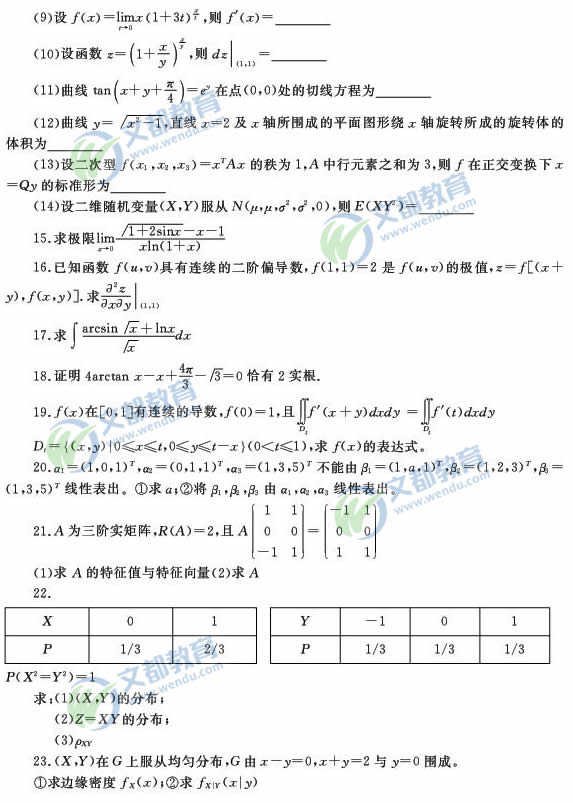 (9)设 f(x)=lim x(1+3t)^{x/t},则 f′(x)=________
t→0
(10)设函数 z=(1+x/y)^{x/y},则 dz|_{(1,1)}=________
(11)曲线 tan(x+y+π/4)=e^y 在点(0,0)处的切线方程为________
(12)曲线 y=√(x²-1),直线 x=2 及 x 轴所围成的平面图形绕 x 轴旋转所成的旋转体的
体积为________
(13)设二次型 f(x₁,x₂,x₃)=xᵀAx 的秩为 1,A 中行元素之和为 3,则 f 在正交变换下 x
=Qy 的标准形为________
(14)设二维随机变量(X,Y)服从 N(μ,μ,σ²,σ²,0),则 E(XY²)=________
15.求极限lim_{x→0} (√(1+2sinx)-x-1)/(xln(1+x))
16.已知函数 f(u,v)具有连续的二阶偏导数,f(1,1)=2 是 f(u,v)的极值,z=f[(x+
y),f(x,y)].求∂²z/∂x∂y|_{(1,1)}
17.求∫(arcsin√x+lnx)/√x dx
18.证明 4arctan x-x+4π/3-√3=0 恰有 2 实根.
19.f(x)在[0,1]有连续的导数,f(0)=1,且∬_{Dt} f′(x+y)dxdy=∬_{Dt} f′(t)dxdy
Dₜ={(x,y)|0≤x≤t,0≤y≤t-x}(0<t≤1),求 f(x)的表达式。
20.α₁=(1,0,1)ᵀ,α₂=(0,1,1)ᵀ,α₃=(1,3,5)ᵀ 不能由 β₁=(1,a,1)ᵀ,β₂=(1,2,3)ᵀ,β₃=
(1,3,5)ᵀ 线性表出。①求 a;②将 β₁,β₂,β₃ 由 α₁,α₂,α₃ 线性表出。
1 1 -1 1
21.A 为三阶实矩阵,R(A)=2,且 A 0 0 = 0 0
-1 1 1 1
(1)求 A 的特征值与特征向量(2)求 A
22.
X 0 1 Y -1 0 1
P 1/3 2/3 P 1/3 1/3 1/3
P(X²=Y²)=1
求:(1)(X,Y)的分布;
(2)Z=XY 的分布;
(3)ρ_{XY}
23.(X,Y)在 G 上服从均匀分布,G 由 x-y=0,x+y=2 与 y=0 围成。
①求边缘密度 f_X(x);②求 f_{X|Y}(x|y)
文都教育
www.wendu.com
文都教育
www.wendu.com
文都教育
www.wendu.com
文都教育
www.wendu.com
文都教育
www.wendu.com